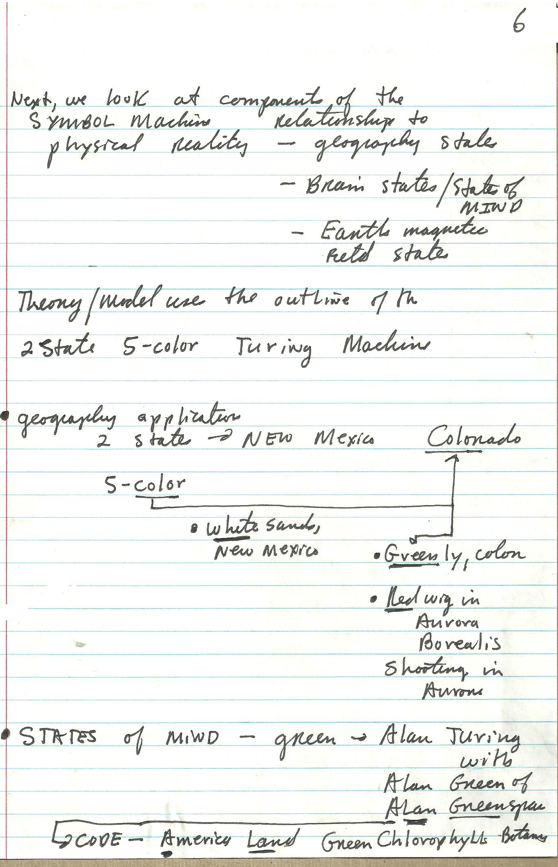 6
Next, we look at components of the
SYMBOL Machine relationship to
physical reality — geography states
— Brain states/States of
MIND
— Earth magnetic
field states
Theory/model uses the outline of th
2 State 5-color Turing Machine
• geography application
2 states → NEW Mexico Colorado
5-color
• White sands,
New Mexico
• Greenly, colon
• Red wig in
Aurora
Borealis
Shooting in
Aurora
• STATES of MIND — green → Alan Turing
with
Alan Green of
Alan Greenspan
CODE — America Land Green Chlorophylls